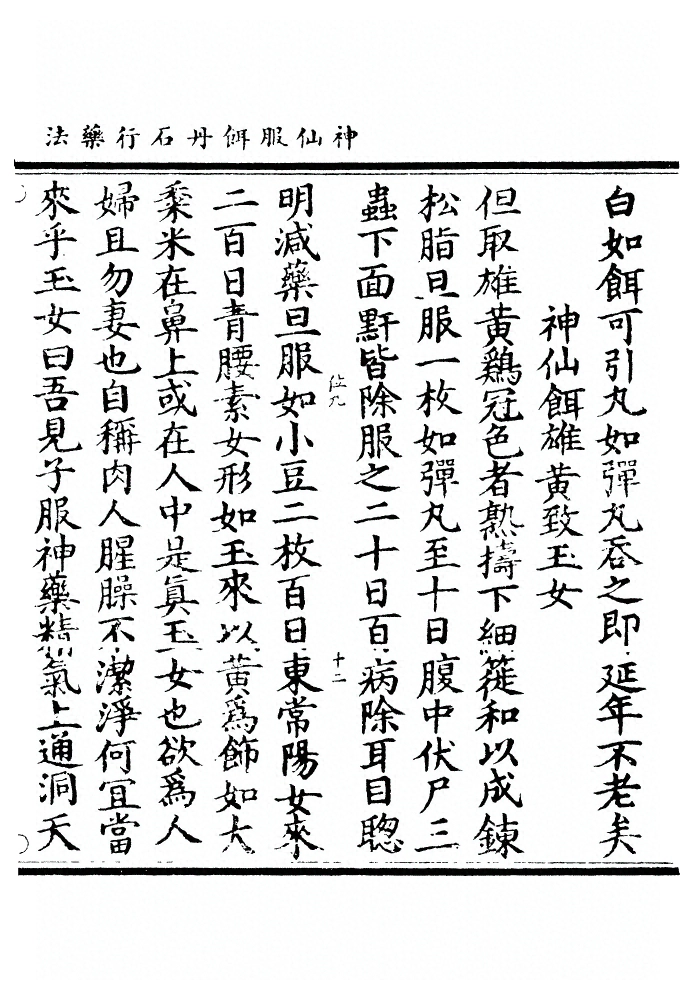 神仙服餌丹石行藥法
白如餌可引丸如彈丸吞之即延年不老矣
神仙餌雄黃致玉女
但取雄黃鷄冠色者熟擣下細簁和以成鍊
松脂旦服一枚如彈丸至十日腹中伏尸三
蟲下面䵟皆除服之二十日百病除耳目聦
位九
十二
明減藥旦服如小豆二枚百日東常陽女來
二百日青腰素女形如玉來以黃爲飾如大
黍米在鼻上或在人中是真玉女也欲爲人
婦且勿妻也自稱肉人腥臊不潔淨何冝當
來乎玉女曰吾見子服神藥精氣上通洞天